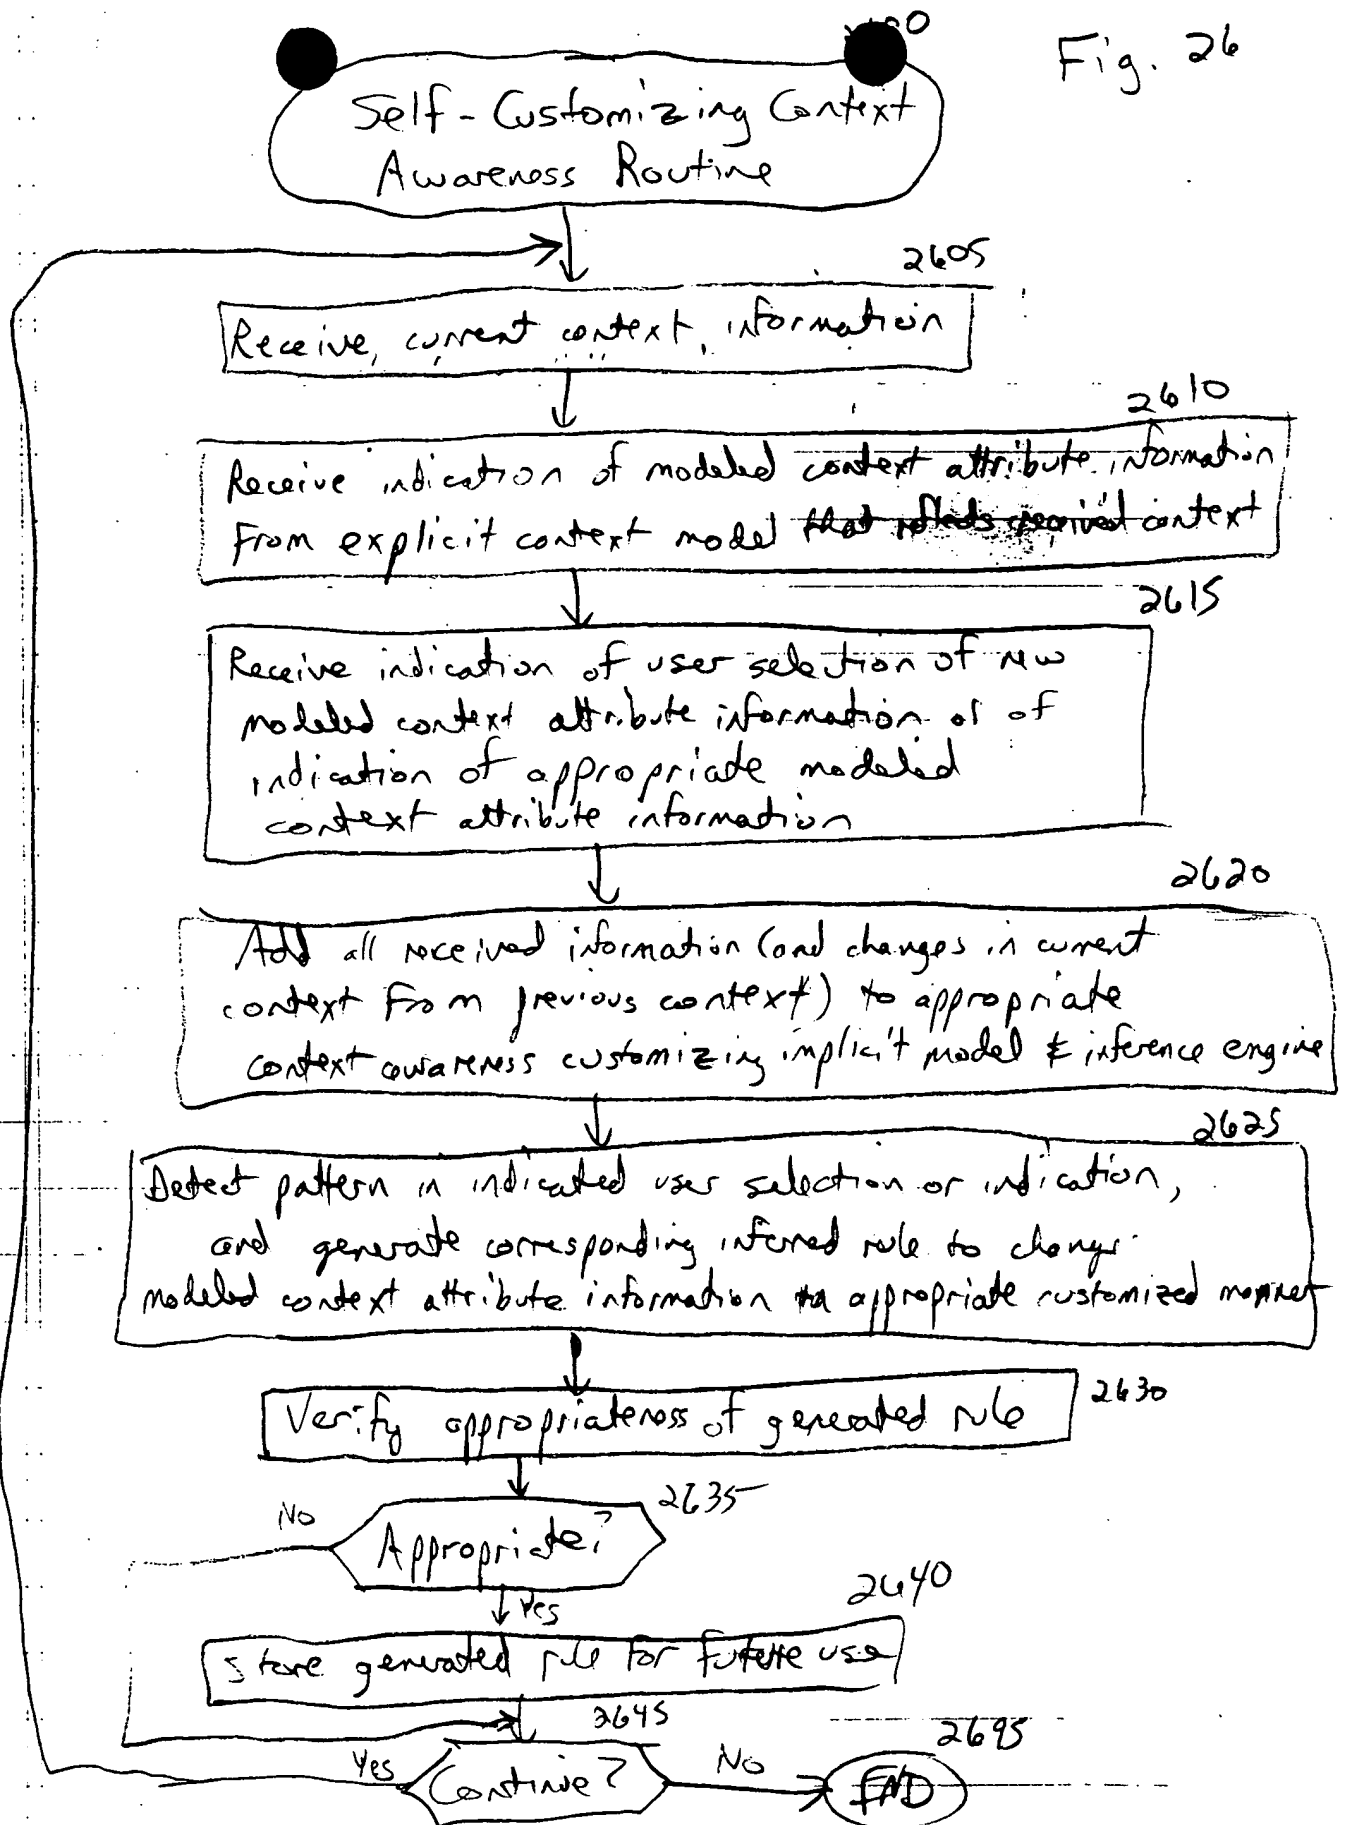 Fig. 26
Self-Customizing Context
Awareness Routine
2605
Receive current context information
2610
Receive indication of modeled context attribute information
From explicit context model that reflects received context
2615
Receive indication of user selection of new
modeled context attribute information or of
indication of appropriate modeled
context attribute information
2620
Add all received information (and changes in current
context From previous context) to appropriate
context awareness customizing implicit model & inference engine
2625
Detect pattern in indicated user selection or indication,
and generate corresponding inferred rule to change
modeled context attribute information in appropriate customized manner
2630
Verify appropriateness of generated rule
2635
No
Appropriate?
Yes
2640
Store generated rule for future use
2645
2695
Yes
Continue?
No
END